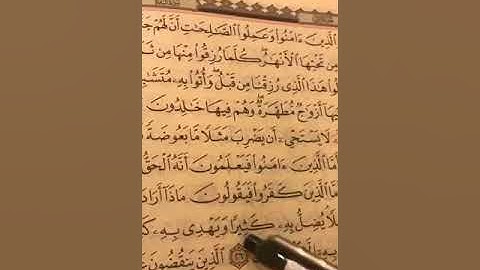 الَّذِينَ ءَامَنُوا وَعَمِلُوا الصَّٰلِحَٰتِ أَنَّ لَهُمْ
مِن تَحْتِهَا الْأَنْهَٰرُ كُلَّمَا رُزِقُوا مِنْهَا مِن
هَٰذَا الَّذِي رُزِقْنَا مِن قَبْلُ وَأُتُوا بِهِ
أَزْوَٰجٌ مُّطَهَّرَةٌ وَهُمْ فِيهَا خَٰلِدُونَ
لَا يَسْتَحْيِ أَن يَضْرِبَ مَثَلًا مَّا بَعُوضَةً
الَّذِينَ ءَامَنُوا فَيَعْلَمُونَ أَنَّهُ الْحَقُّ
الَّذِينَ كَفَرُوا فَيَقُولُونَ مَاذَا أَرَادَ
يُضِلُّ بِهِ كَثِيرًا وَيَهْدِي بِهِ
الَّذِينَ يَنقُضُونَ